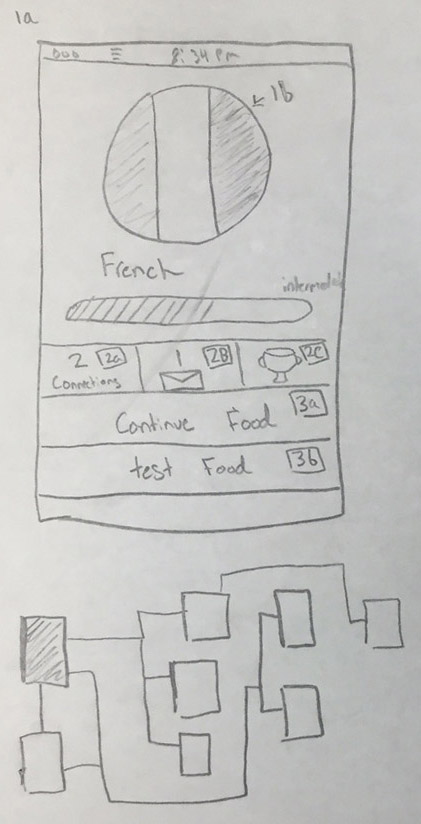 1a
8:34 Pm
1b
French
intermediat
2 2a 1 2B 2c
Connections
Continue Food 3a
test Food 3b